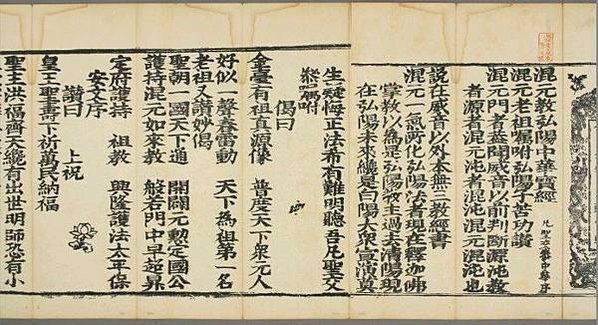 混元教弘陽中華寶經
混元老祖囑咐弘陽子苦功讚
混元門者蓋聞威音以前判斷源沌教
者源者混沌者沌混元混沌也
說在威音以外本無三教經書
混元一氣所化弘陽法者現在釋迦佛
掌教以為是弘陽教主過去清陽現
在弘陽未來纔是白陽大衆宣演莫
生疑悔正法希有難明聽吾凡聖交
參囑咐
偈曰
金臺有祖真源像 普度天下衆元人
好似一聲春雷動 天下為祖第一名
老祖又讚妙偈
聖朝一國天下通 開闢元勳定國公
護持混元如來教 般若門中早超昇
定府護持 祖教 興隆護法太平保
安文序
讚曰 上祝
皇王聖壽下祈萬民納福
聖主洪福齊天纔有出世明師恐有小